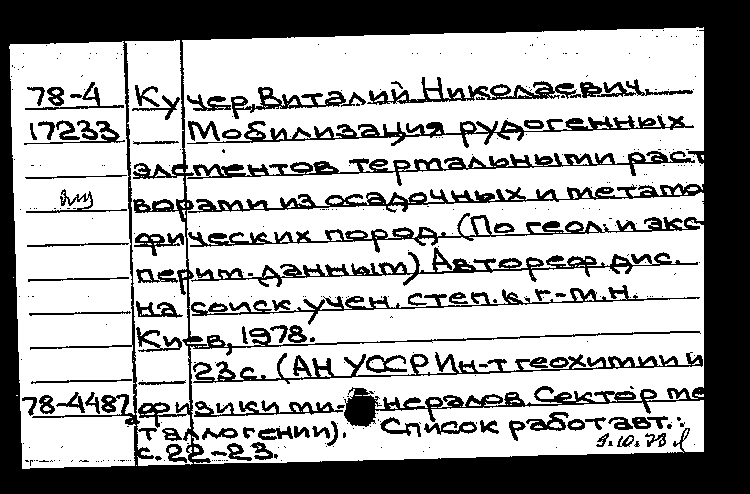 78-4 Кучер, Виталий Николаевич.
17233 Мобилизация рудогенных
элементов термальными раст
ворами из осадочных и метамо
фических пород. (По геол. и экс-
перим. данным). Автореф. дис.
на соиск. учен. степ. к. г-м.н.
Киев, 1978.
23с. (АН УССР Ин-т геохимии и
78-4487 физики минералов. Сектор ме
таллогении). Список работ авт.:
с. 22-23.